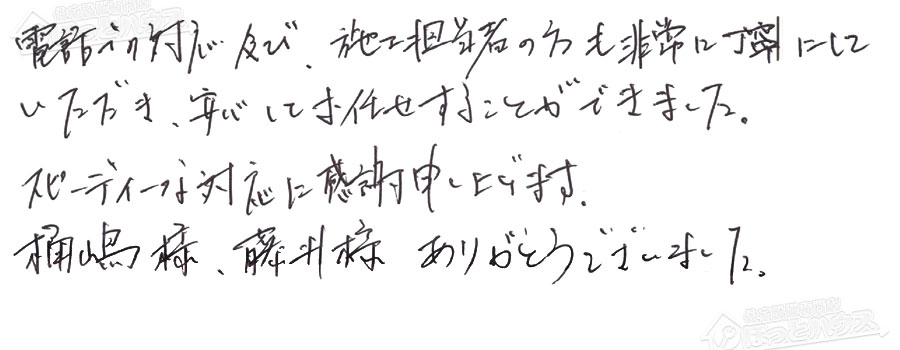 電話の対応及び、施工担当者の方も非常に丁寧にして
いただき、安心してお任せすることができました。
スピーディーな対応に感謝申し上げます。
桶嶋様、藤井様 ありがとうございました。
住宅設備専門店
ほっとハウス